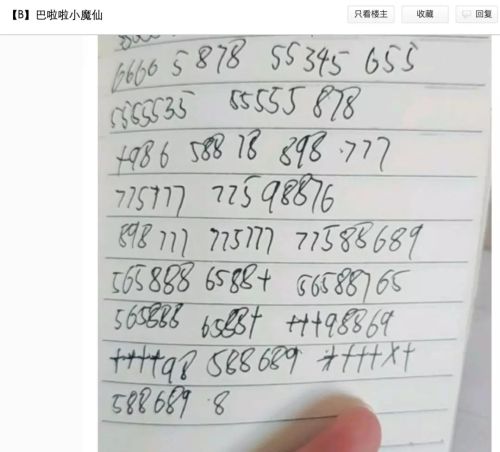 【B】巴啦啦小魔仙
只看楼主 收藏 回复
6666 5878 55345 655
5565535 55555 878
+986 588 78 898 .777
775777 77598876
898 777 775777 77588689
565888 6588+ 56588765
565888 6588+ +++98869
++++98 588689 ++++x+
588689 .8